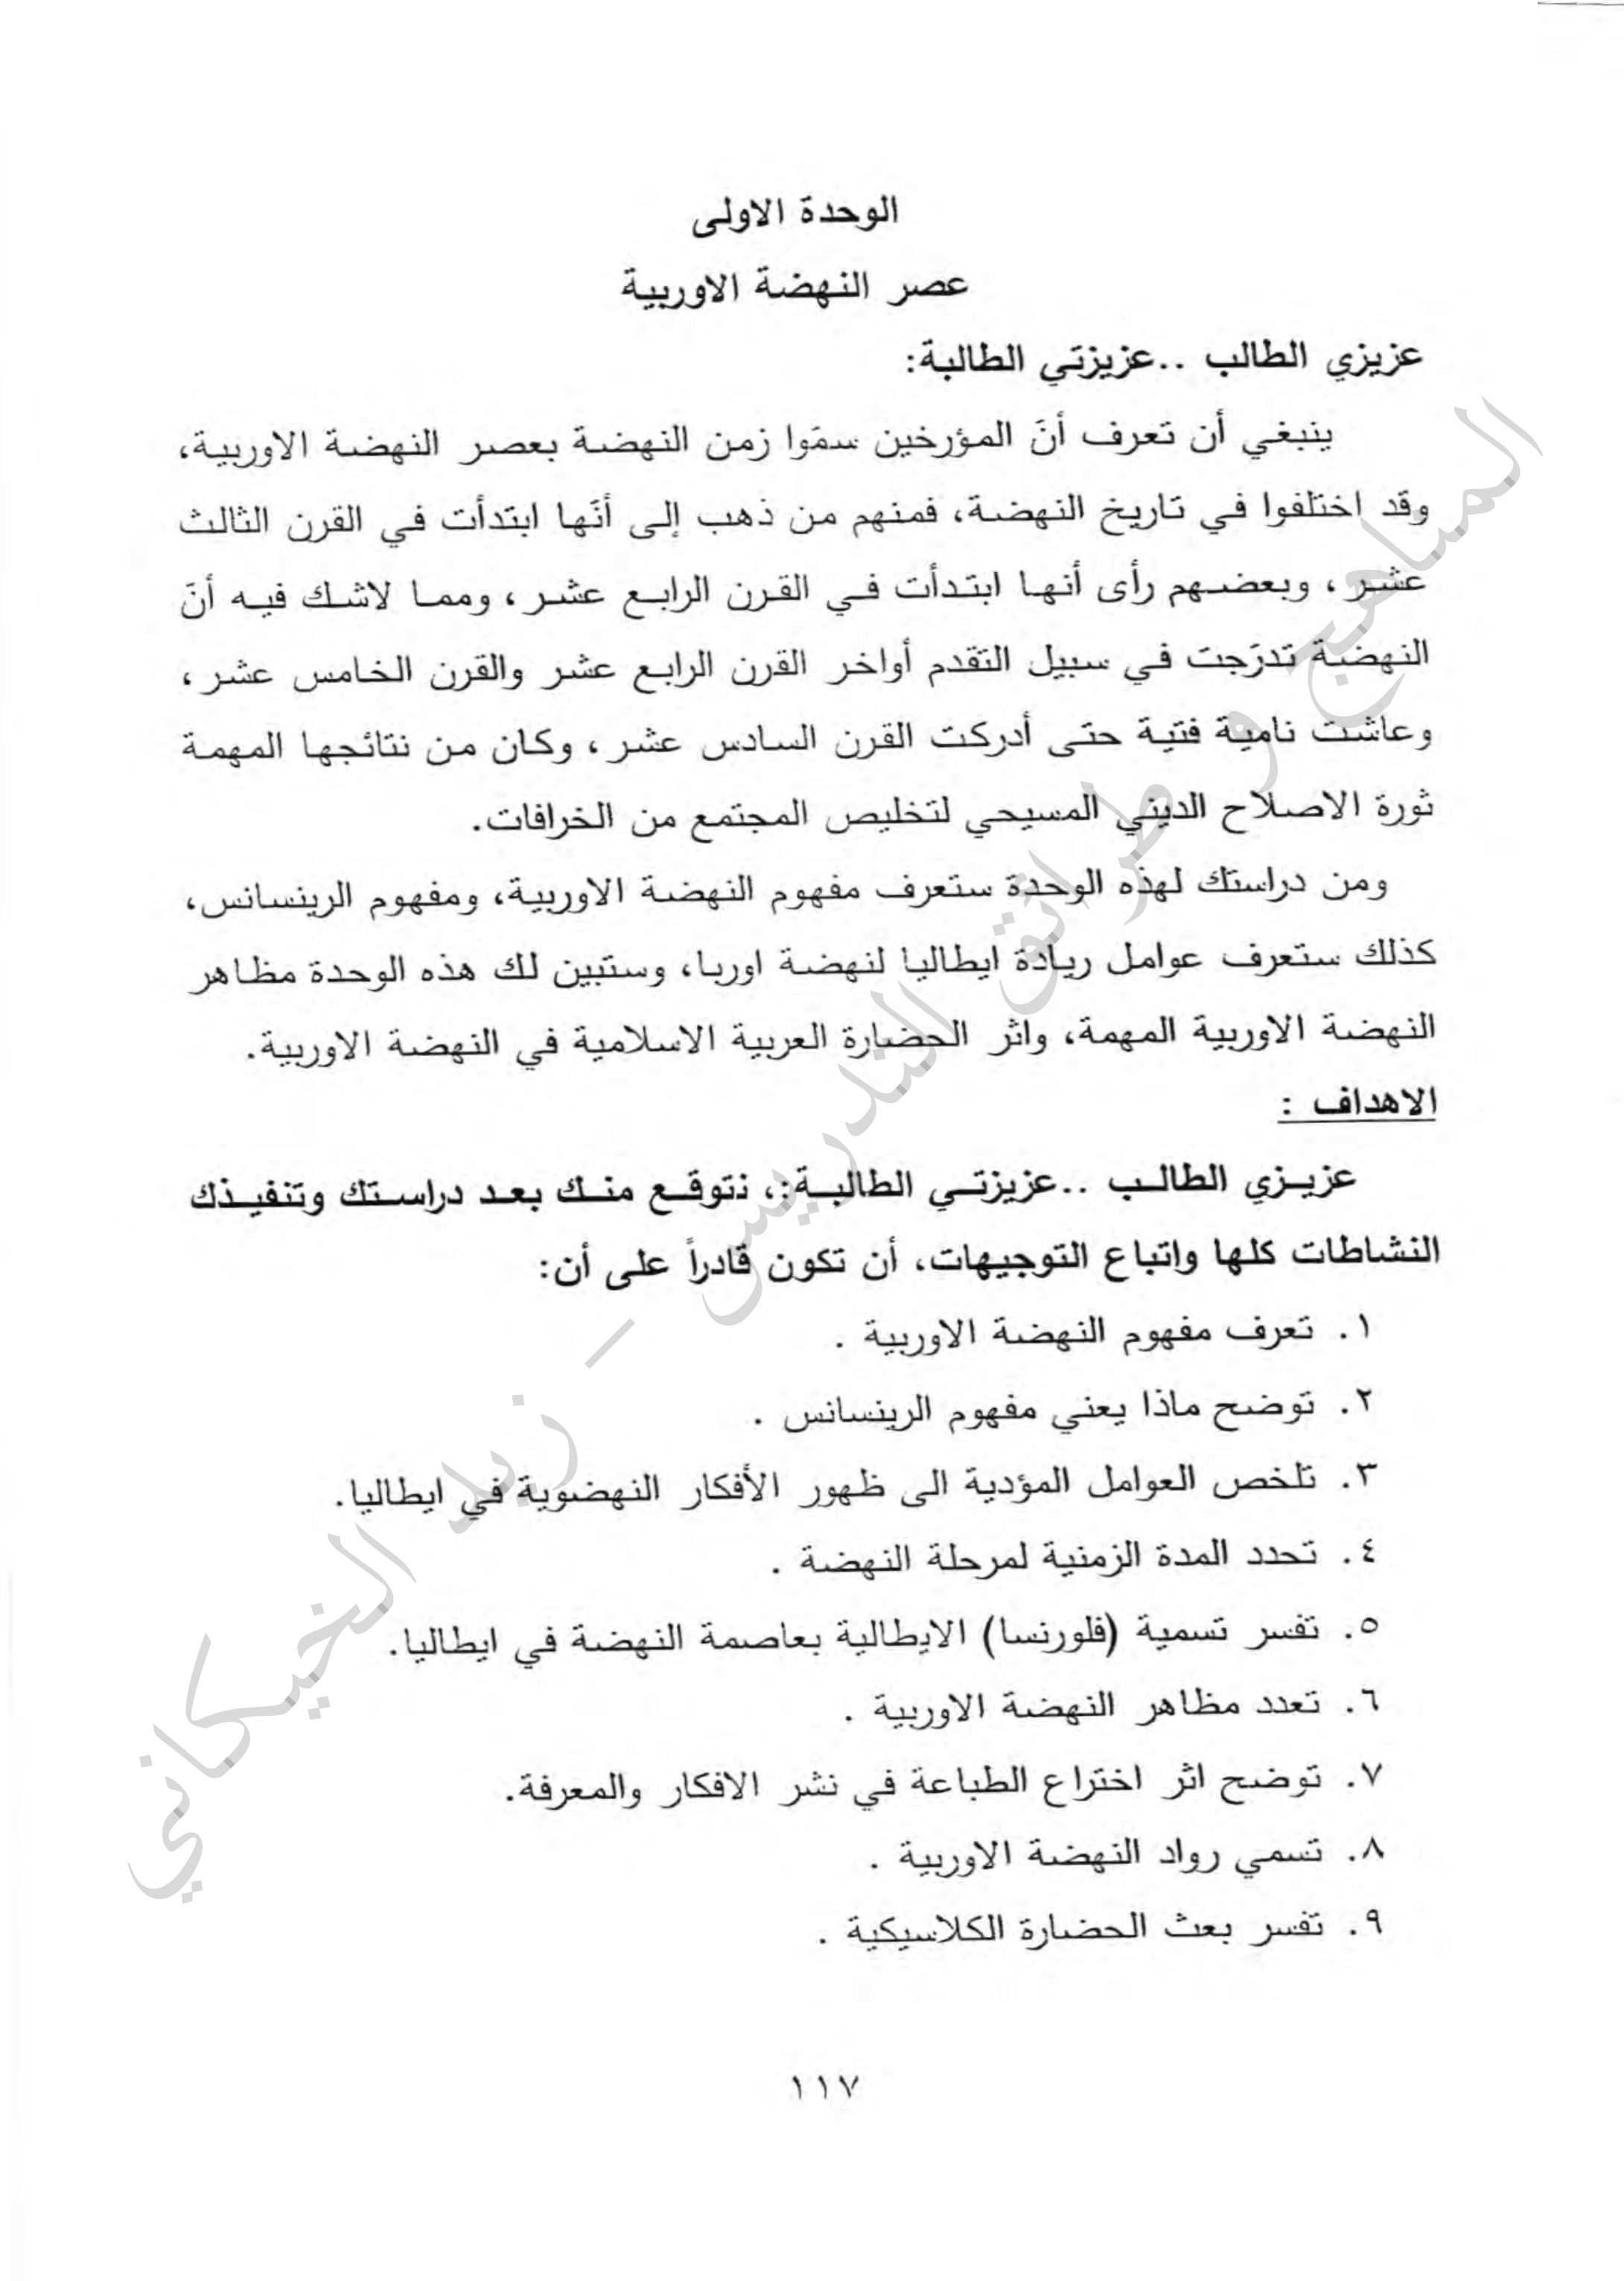 الوحدة الاولى
عصر النهضة الاوربية
عزيزي الطالب ..عزيزتي الطالبة:
ينبغي أن تعرف أنَ المؤرخين سمَوا زمن النهضة بعصر النهضة الاوربية،
وقد اختلفوا في تاريخ النهضة، فمنهم من ذهب إلى أنَها ابتدأت في القرن الثالث
عشر ، وبعضهم رأى أنها ابتدأت في القرن الرابع عشر ، ومما لاشك فيه أنَ
النهضة تدرَجت في سبيل التقدم أواخر القرن الرابع عشر والقرن الخامس عشر ،
وعاشت نامية فتية حتى أدركت القرن السادس عشر ، وكان من نتائجها المهمة
ثورة الاصلاح الديني المسيحي لتخليص المجتمع من الخرافات.
ومن دراستك لهذه الوحدة ستعرف مفهوم النهضة الاوربية، ومفهوم الرينسانس،
كذلك ستعرف عوامل ريادة ايطاليا لنهضة اوربا، وستبين لك هذه الوحدة مظاهر
النهضة الاوربية المهمة، واثر الحضارة العربية الاسلامية في النهضة الاوربية.
الاهداف :
عزيزي الطالب ..عزيزتي الطالبة:، نتوقع منك بعد دراستك وتنفيذك
النشاطات كلها واتباع التوجيهات، أن تكون قادراً على أن:
١. تعرف مفهوم النهضة الاوربية .
٢. توضح ماذا يعني مفهوم الرينسانس .
٣. تلخص العوامل المؤدية الى ظهور الأفكار النهضوية في ايطاليا.
٤. تحدد المدة الزمنية لمرحلة النهضة .
٥. تفسر تسمية (فلورنسا) الايطالية بعاصمة النهضة في ايطاليا.
٦. تعدد مظاهر النهضة الاوربية .
٧. توضح اثر اختراع الطباعة في نشر الافكار والمعرفة.
٨. تسمي رواد النهضة الاوربية .
٩. تفسر بعث الحضارة الكلاسيكية .
١١٧
المناهج و طرائق التدريس – زيد الخيكاني